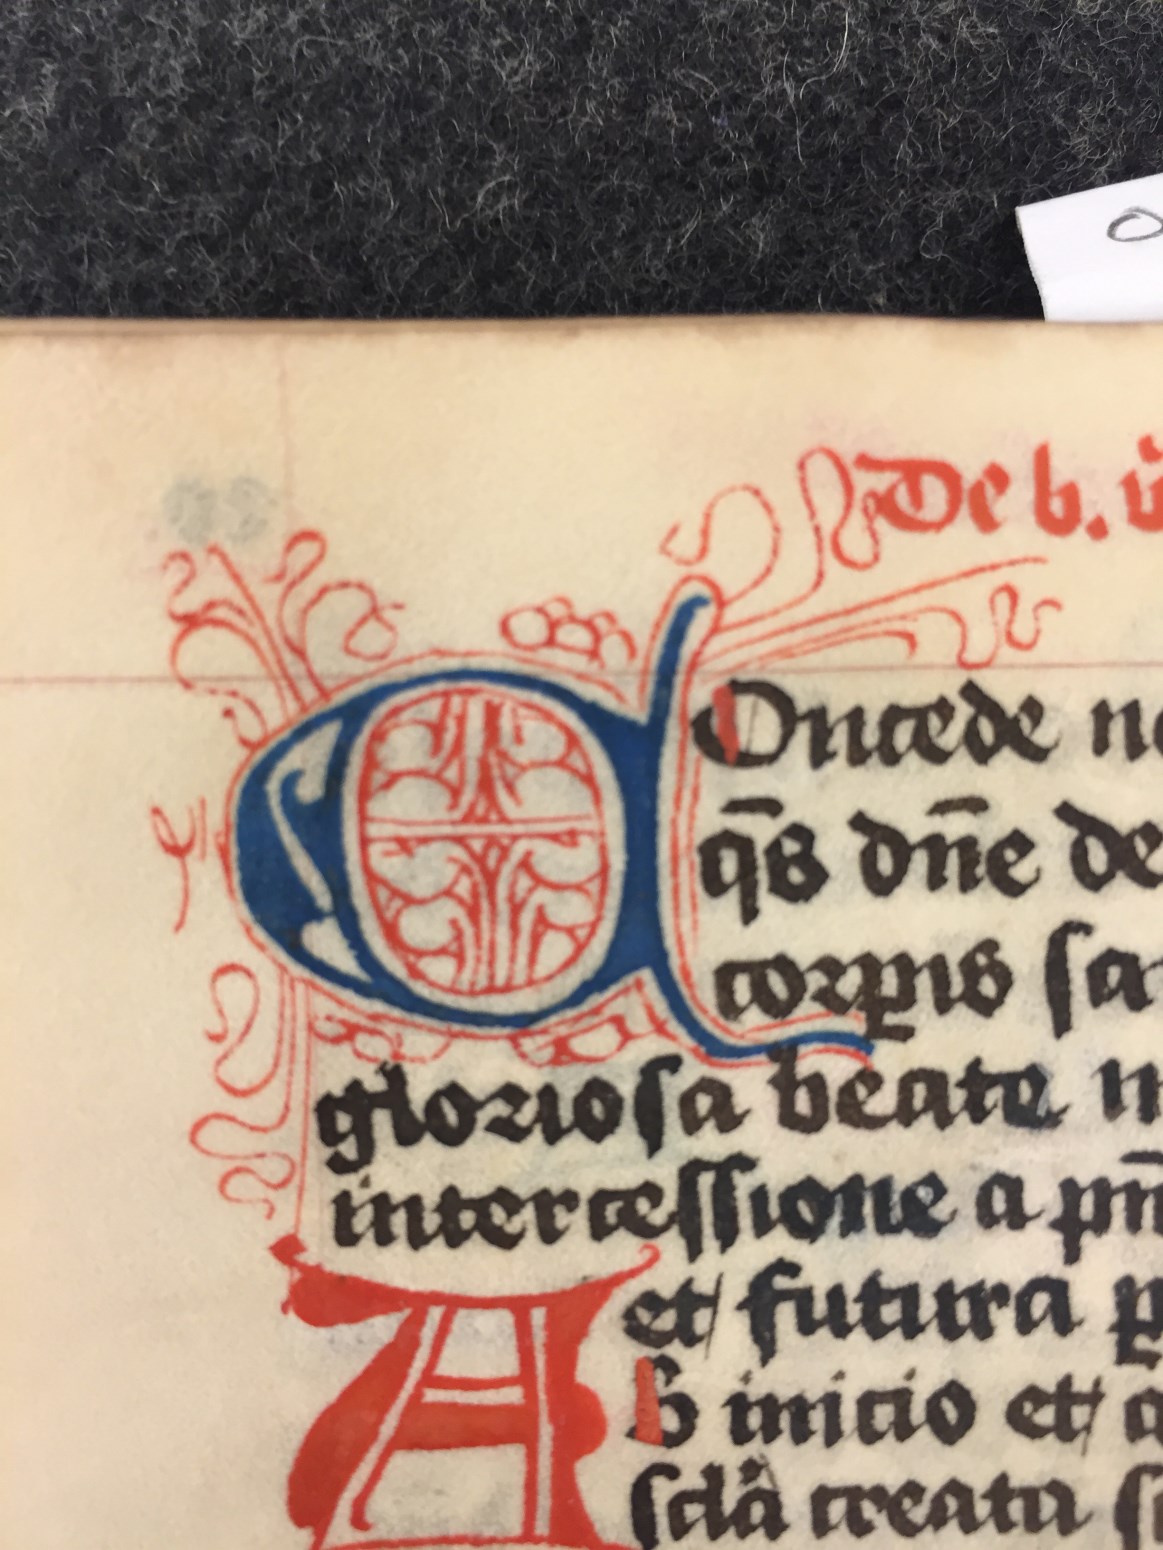 De b. v̄
COncede no
qs̄ dn̄e de
corpis sa
gloriosa beate m
intercessione a pn̄
et futura p
Ab inicio et a
scl̄a creata s